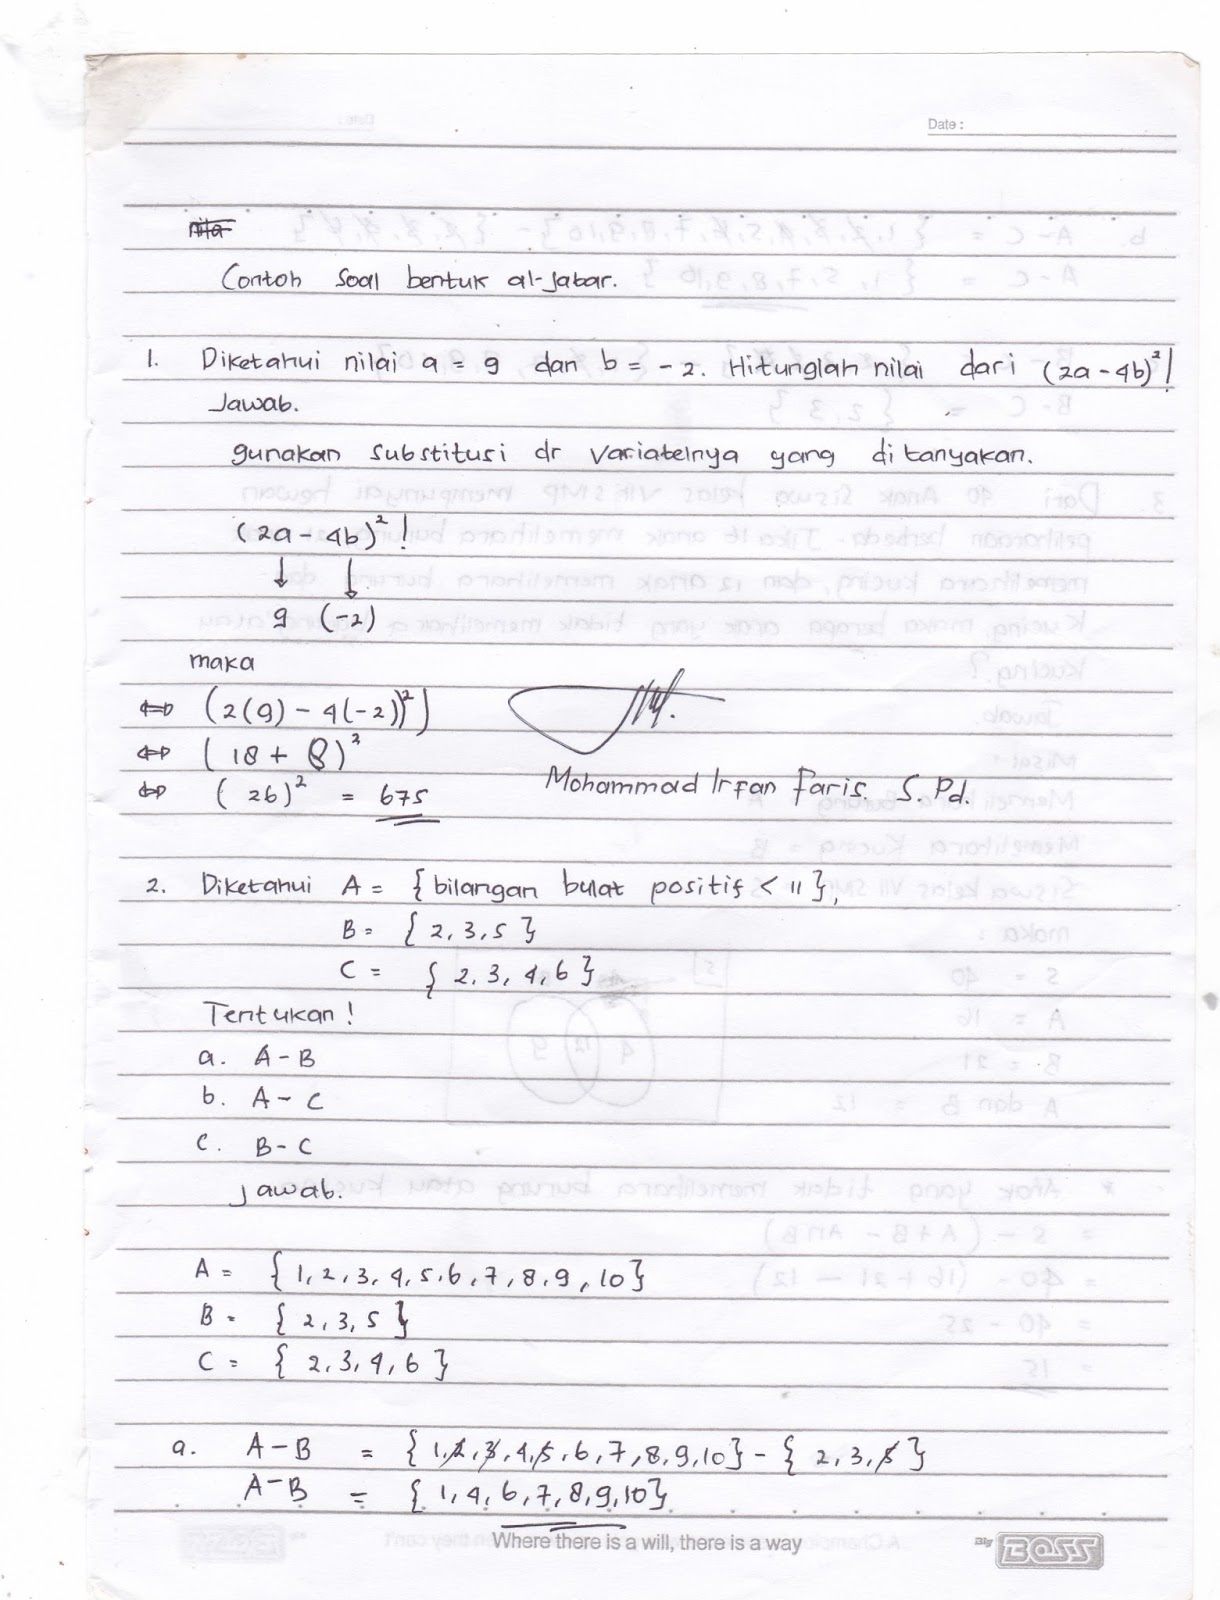 Date :
Contoh Soal bentuk al-jabar.
1. Diketahui nilai a = 9 dan b = -2. Hitunglah nilai dari (2a - 4b)²!
Jawab.
gunakan substitusi dr variabelnya yang ditanyakan.
(2a - 4b)²!
↓ ↓
9 (-2)
maka
⇔ (2(9) - 4(-2))²)
⇔ (18 + 8)²
⇔ (26)² = 675
Mohammad Irfan Faris, S.Pd.
2. Diketahui A = {bilangan bulat positif < 11},
B = {2, 3, 5}
C = {2, 3, 4, 6}
Tentukan!
a. A - B
b. A - C
c. B - C
Jawab.
A = {1, 2, 3, 4, 5, 6, 7, 8, 9, 10}
B = {2, 3, 5}
C = {2, 3, 4, 6}
a. A - B = {1, 2, 3, 4, 5, 6, 7, 8, 9, 10} - {2, 3, 5}
A - B = {1, 4, 6, 7, 8, 9, 10}
Where there is a will, there is a way
Big BOSS